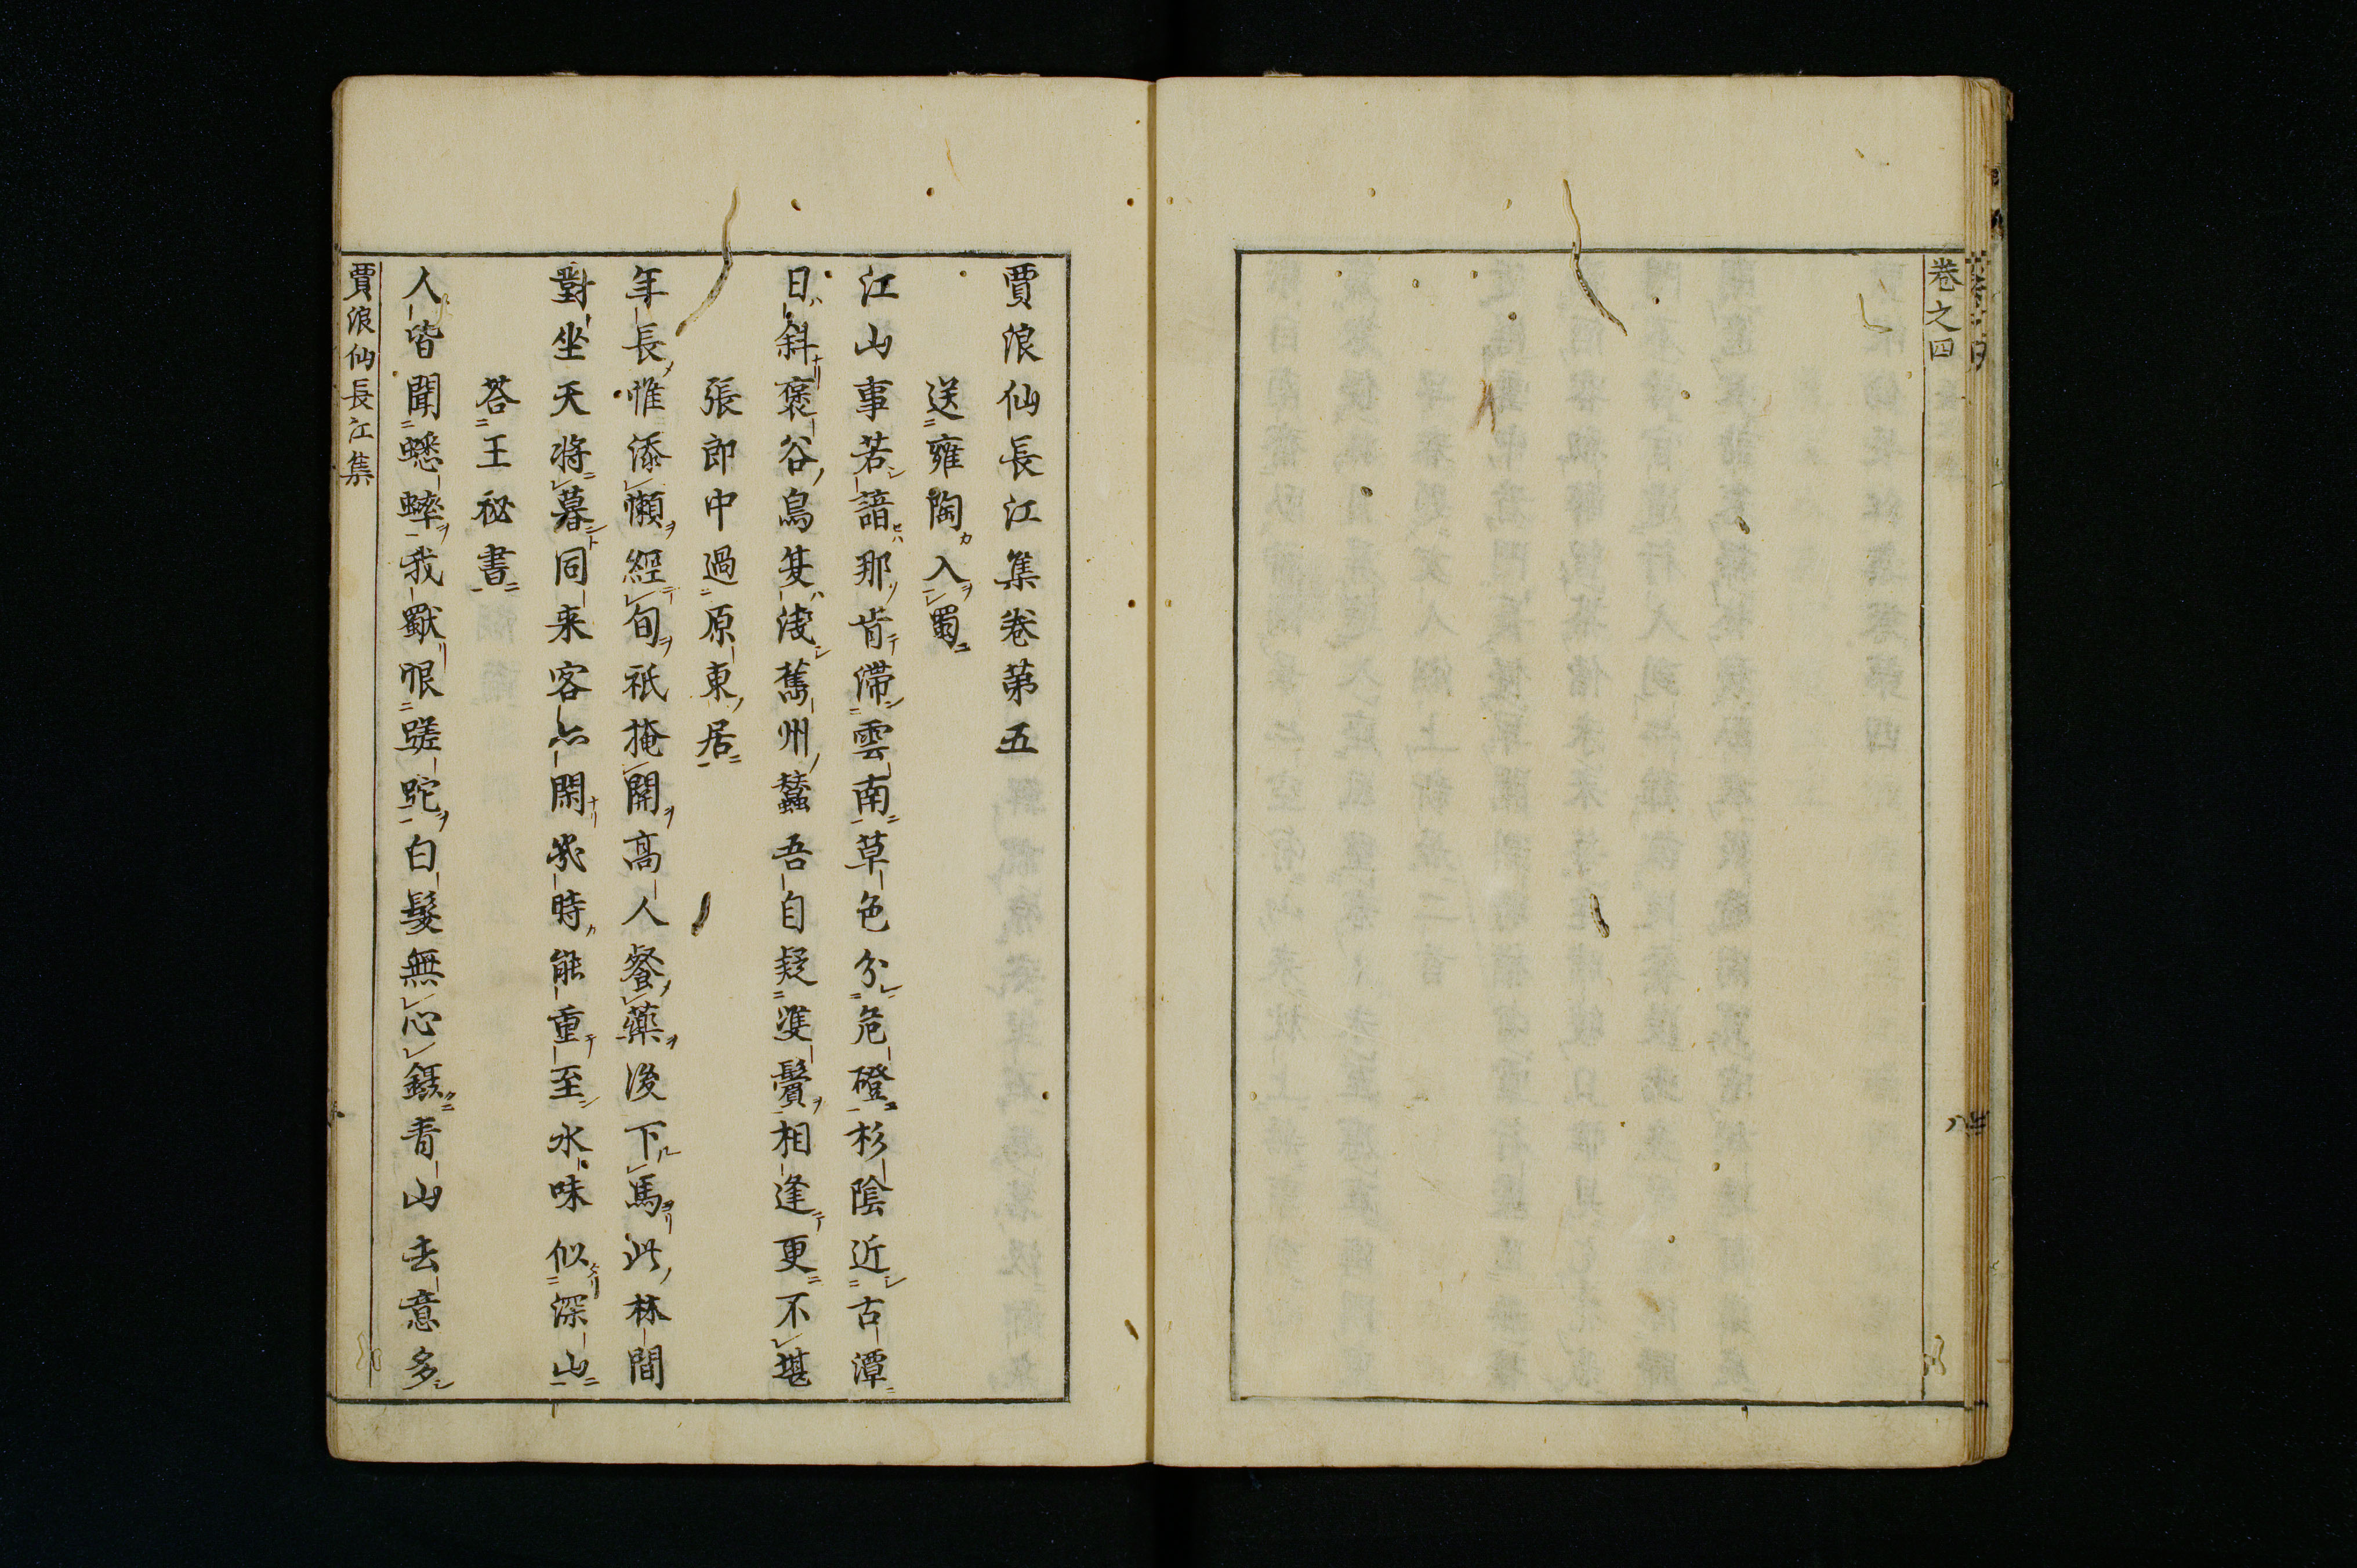 卷之四
賈浪仙長江集卷第五
送雍陶入蜀
江山事若諳那肯滯雲南草色分危磴杉陰近古潭
日斜褒谷鳥夏淺舊州蠶吾自疑雙鬢相逢更不堪
張郎中過原東居
年長惟添懶經旬祇掩關高人餐藥後下馬此林間
對坐天將暮同来客亦閑幾時能重至水味似深山
荅王祕書
人皆聞蟋蟀我獸恨蹉跎白髮無心鑷青山去意多
賈浪仙長江集